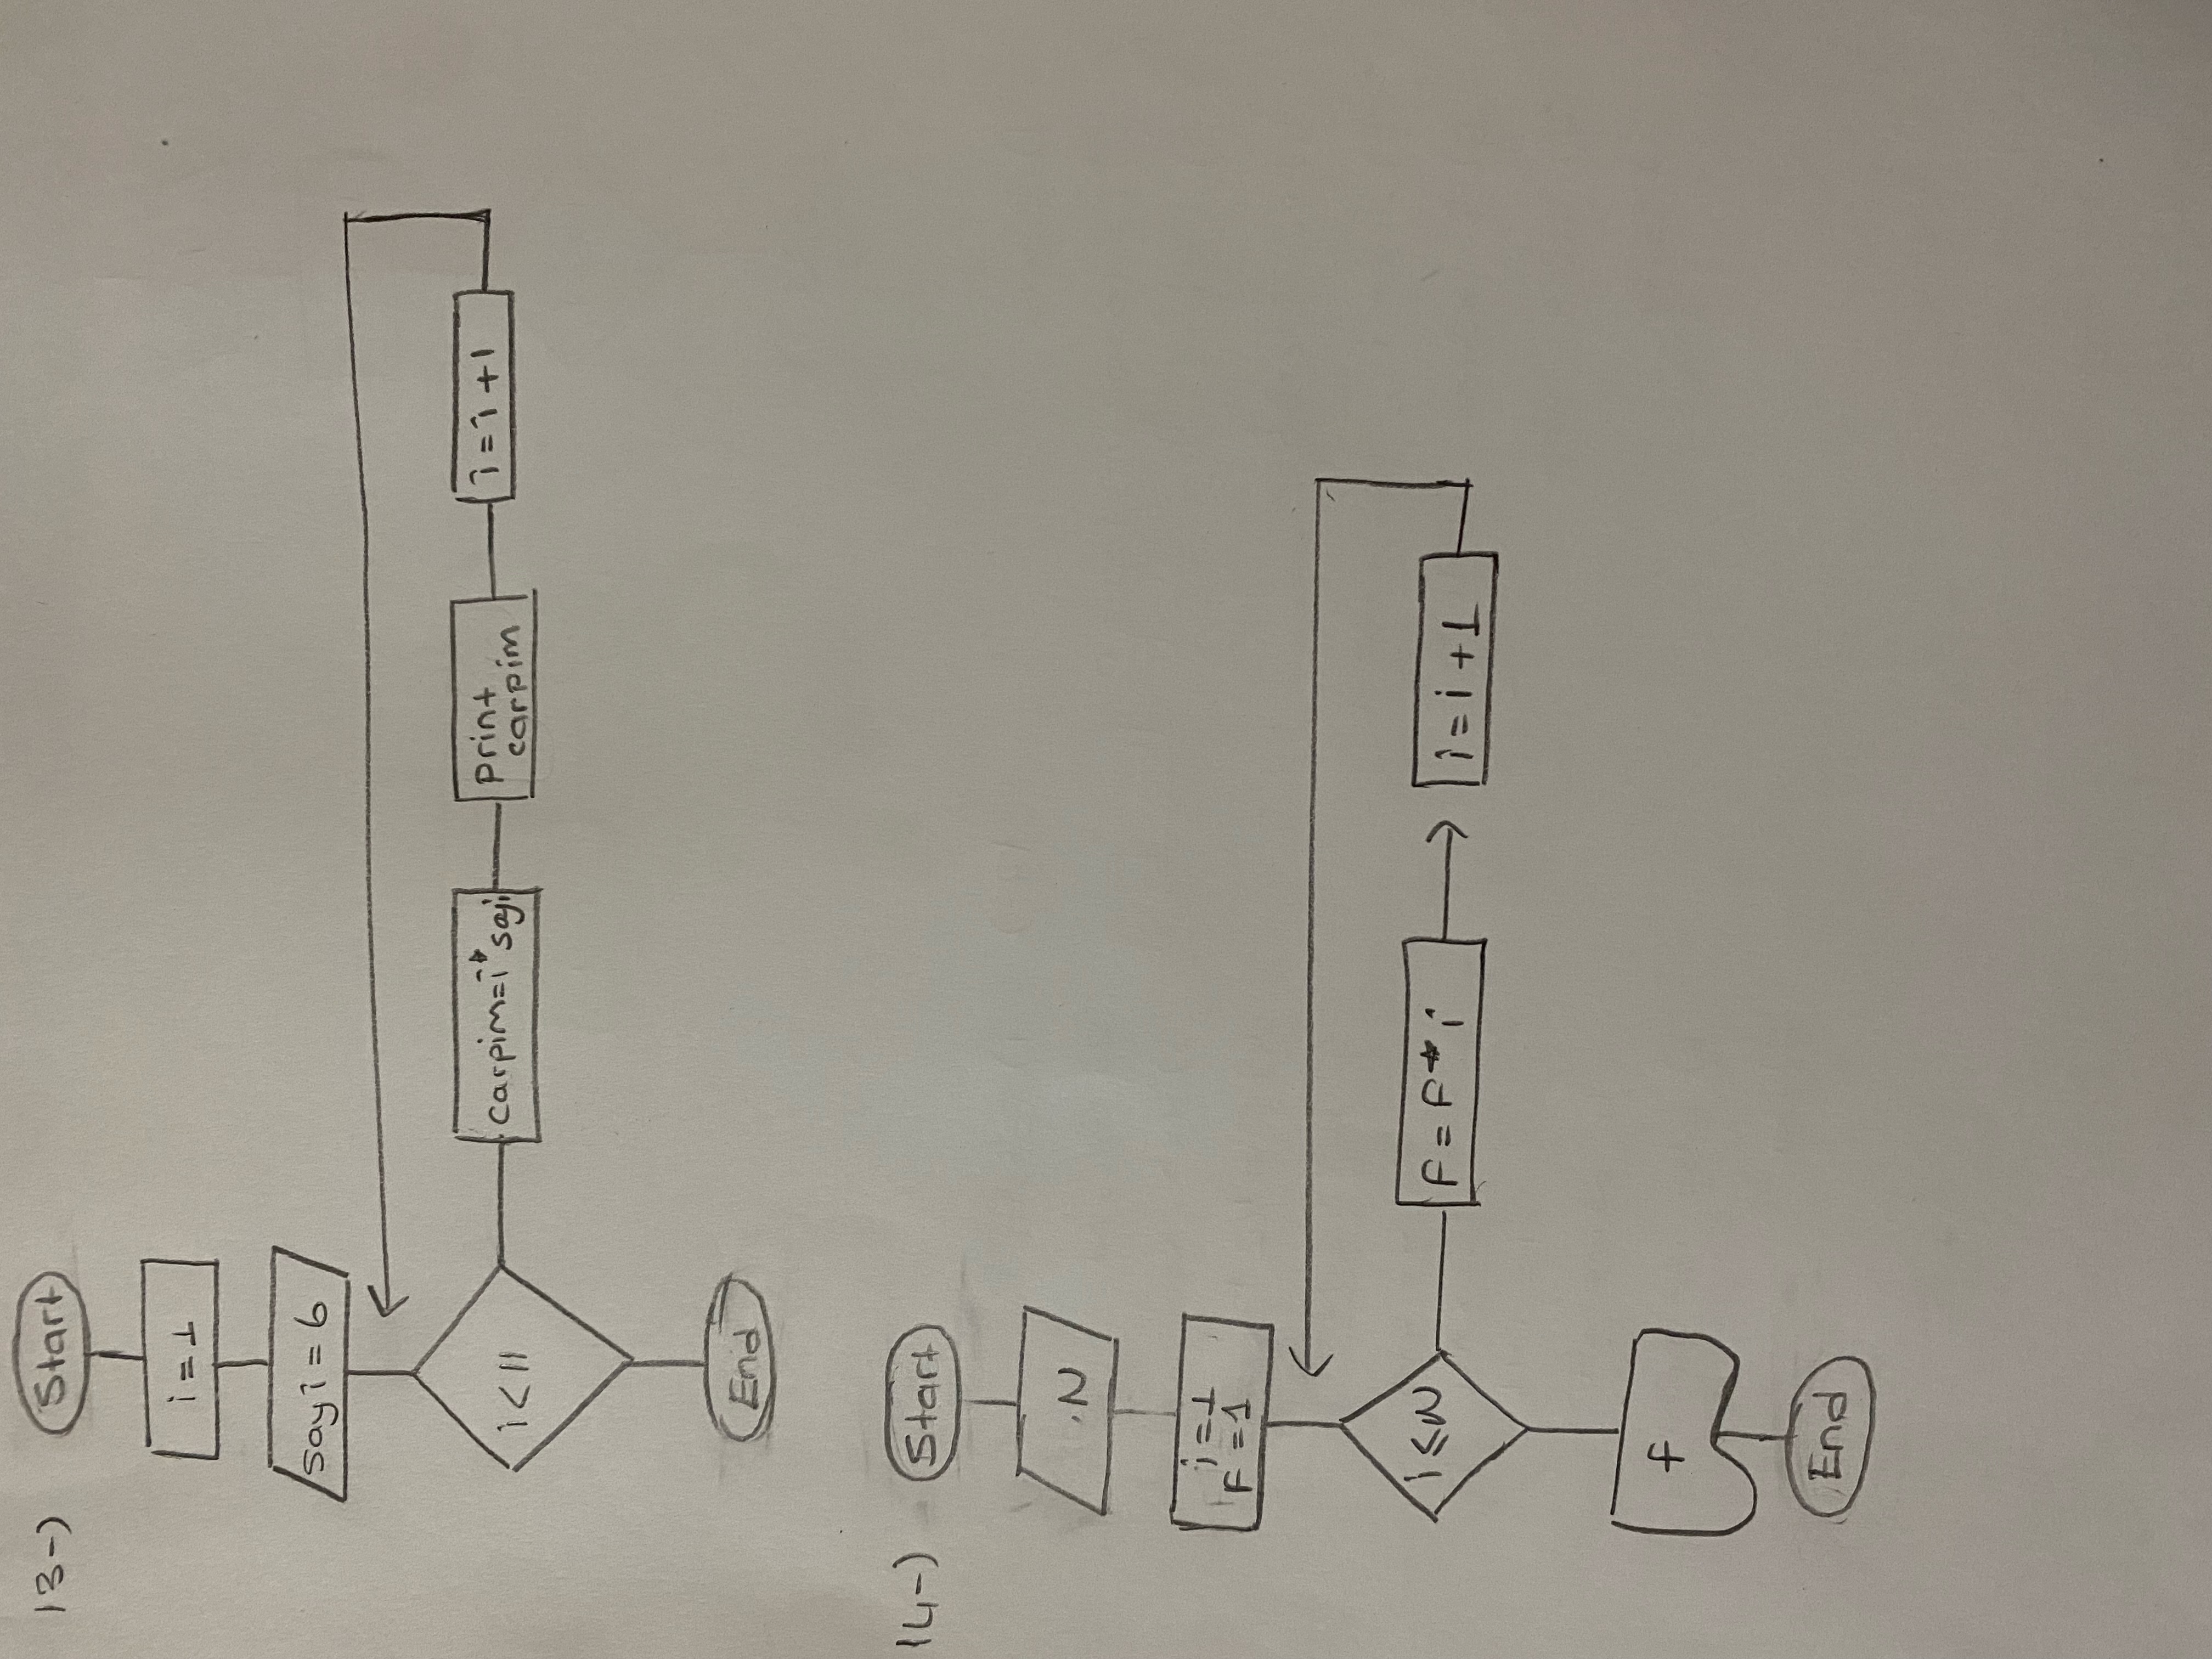 13-)
Start
i=1
sayi=6
i<11
carpim=i*sayi
print
carpim
i=i+1
End
14-)
Start
N
i=1
F=1
i≤N
F=F*i
i=i+1
f
End